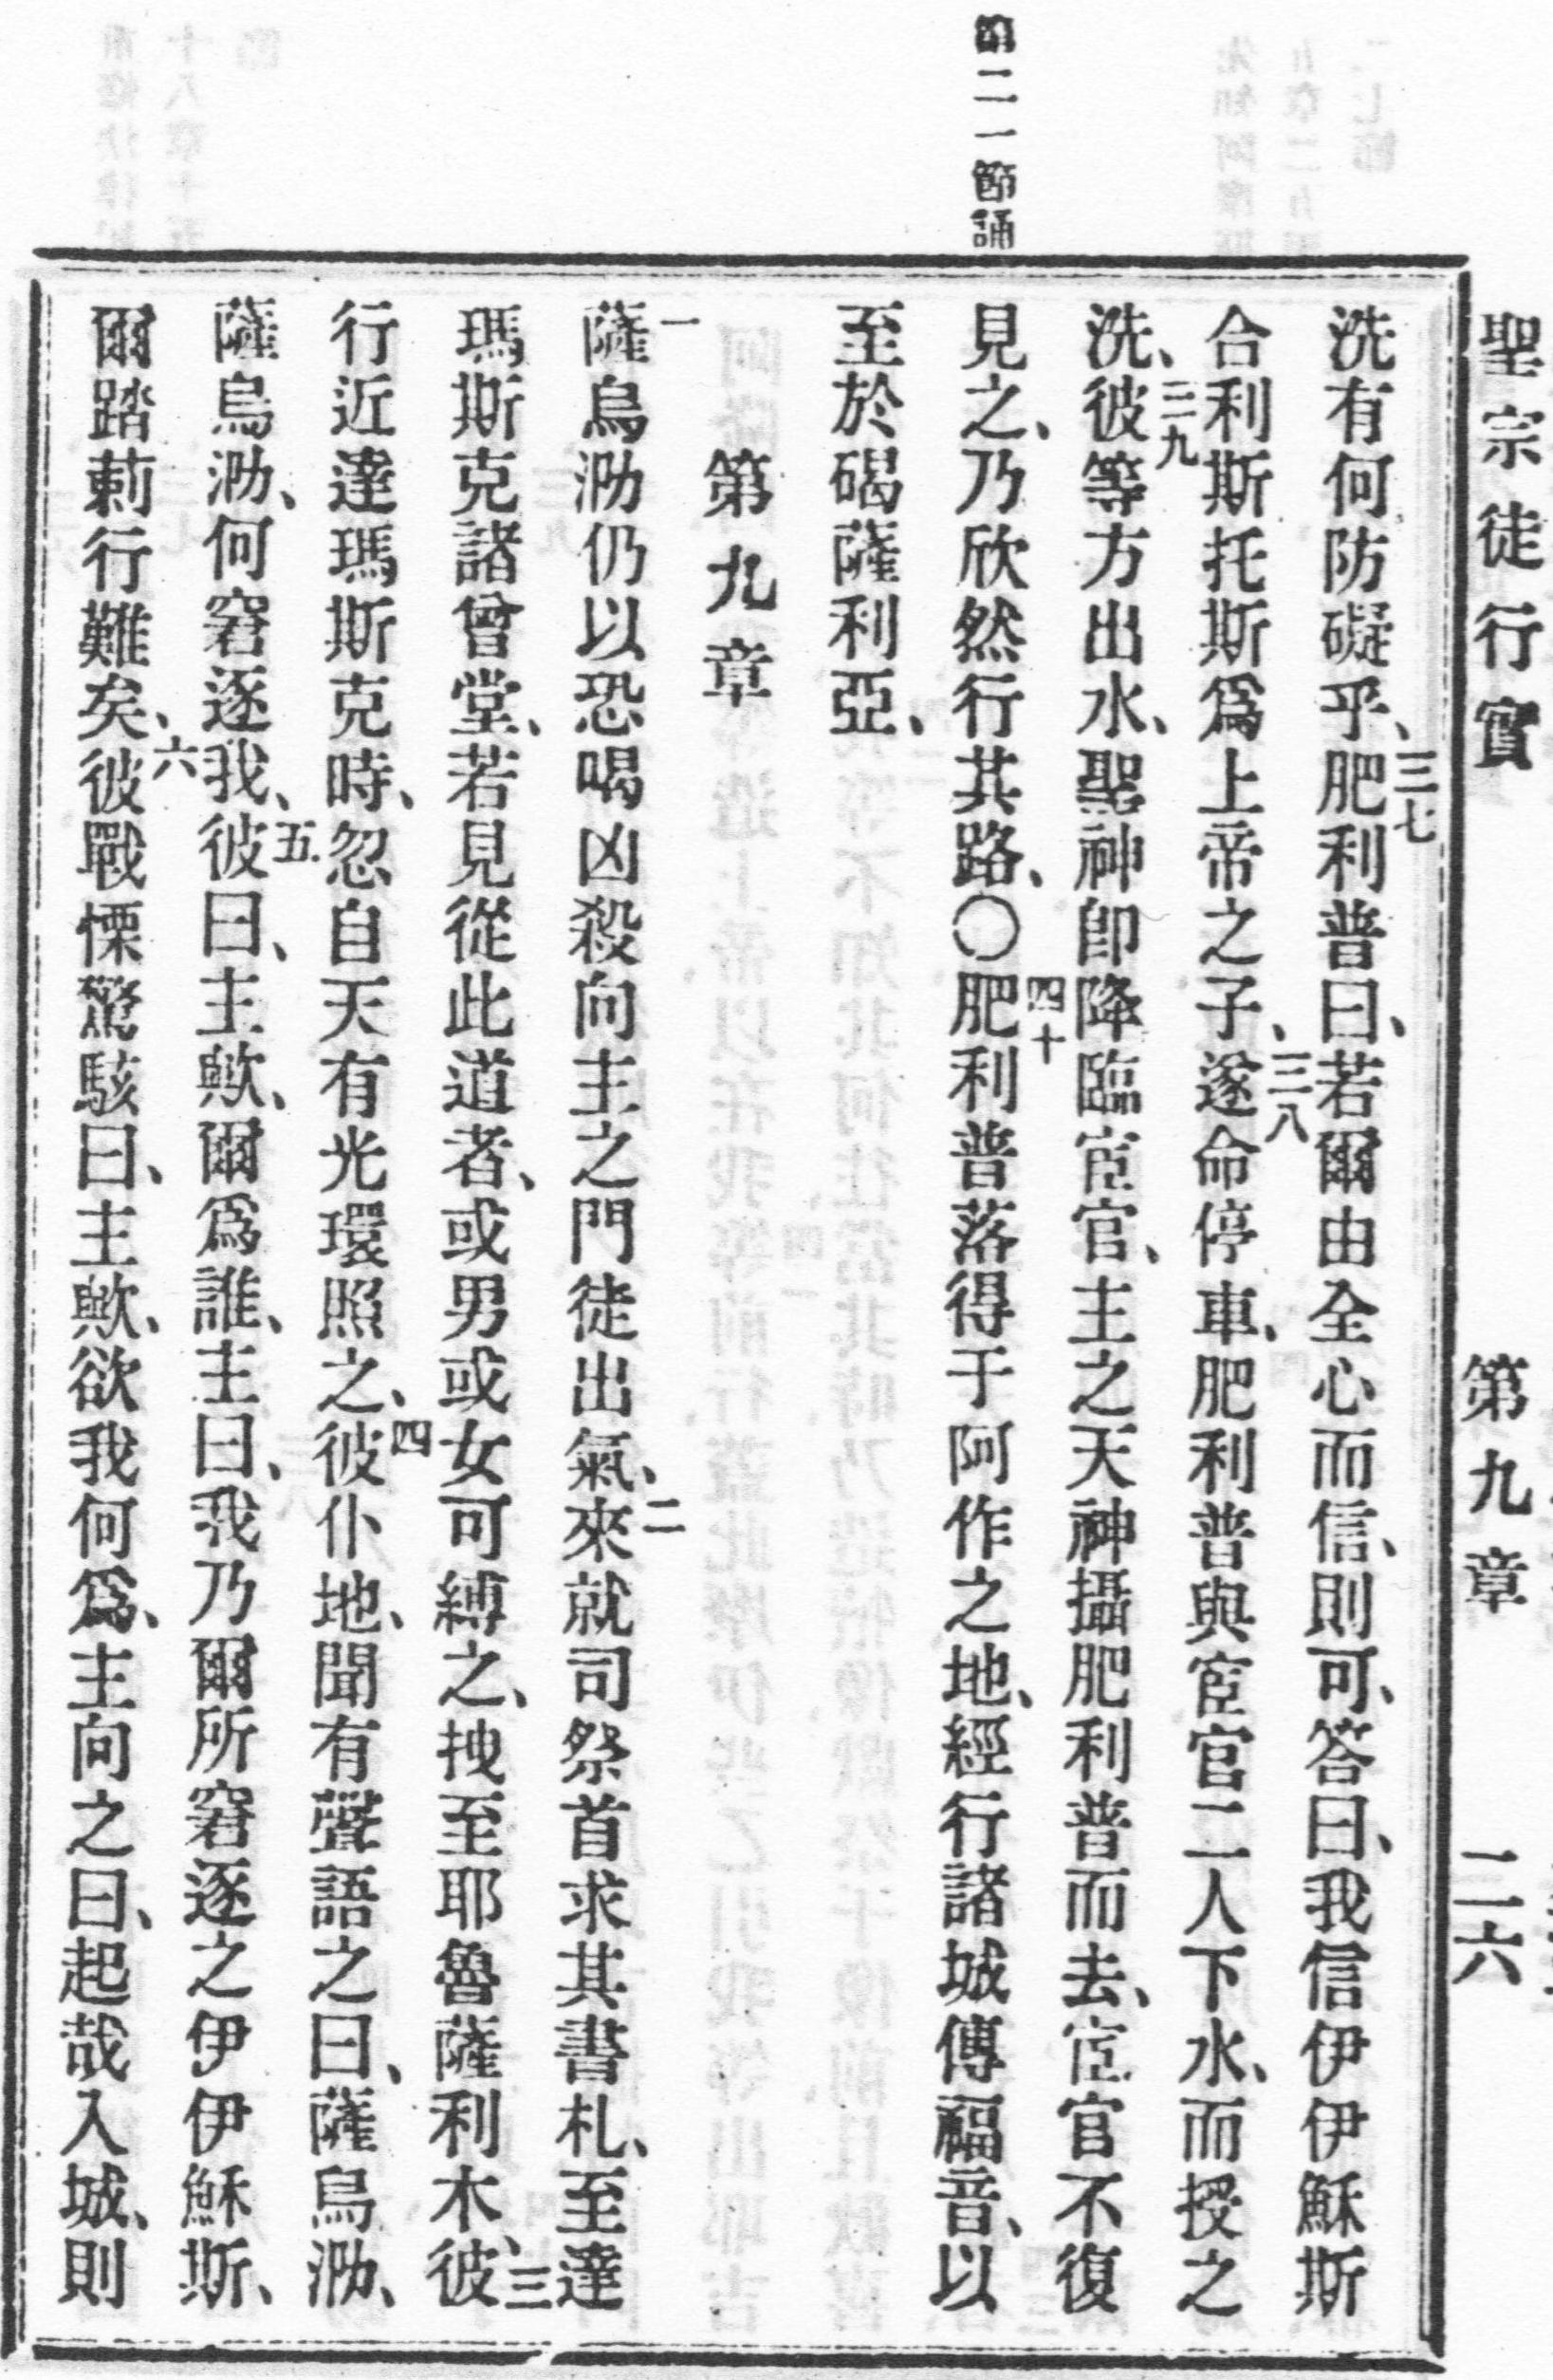 聖宗徒行實 第九章 二六
第二一節誦
洗有何防礙乎、三七肥利普曰、若爾由全心而信、則可、答曰、我信伊伊穌斯
合利斯托斯爲上帝之子、三八遂命停車、肥利普與宦官二人下水、而授之
洗、三九彼等方出水、聖神卽降臨宦官、主之天神攝肥利普而去、宦官不復
見之、乃欣然行其路、〇四十肥利普落得于阿作之地、經行諸城傳福音、以
至於碣薩利亞、
第九章
一薩烏泐仍以恐喝凶殺向主之門徒出氣、二來就司祭首求其書札、至達
瑪斯克諸會堂、若見從此道者、或男或女可縛之、拽至耶魯薩利木、三彼
行近達瑪斯克時、忽自天有光環照之、四彼仆地、聞有聲語之曰、薩烏泐、
薩烏泐、何窘逐我、五彼曰、主歟、爾爲誰、主曰、我乃爾所窘逐之伊伊穌斯、
爾踏莿行難矣、六彼戰慄驚駭曰、主歟、欲我何爲、主向之曰、起哉入城、則